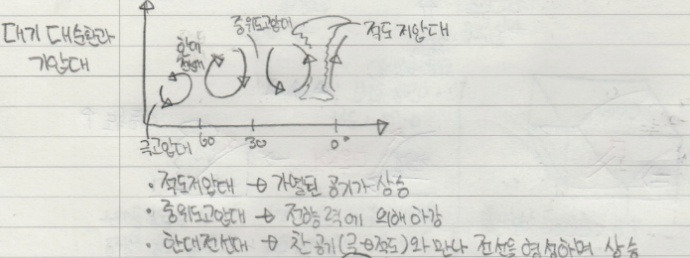 대기 대순환과
기압대
중위도고압대
적도저압대
한대
전선대
극고압대
60
30
0°
• 적도저압대 → 가열된 공기가 상승
• 중위도고압대 → 전향력에 의해 하강
• 한대전선대 → 찬공기(극→적도)와 만나 전선을 형성하며 상승